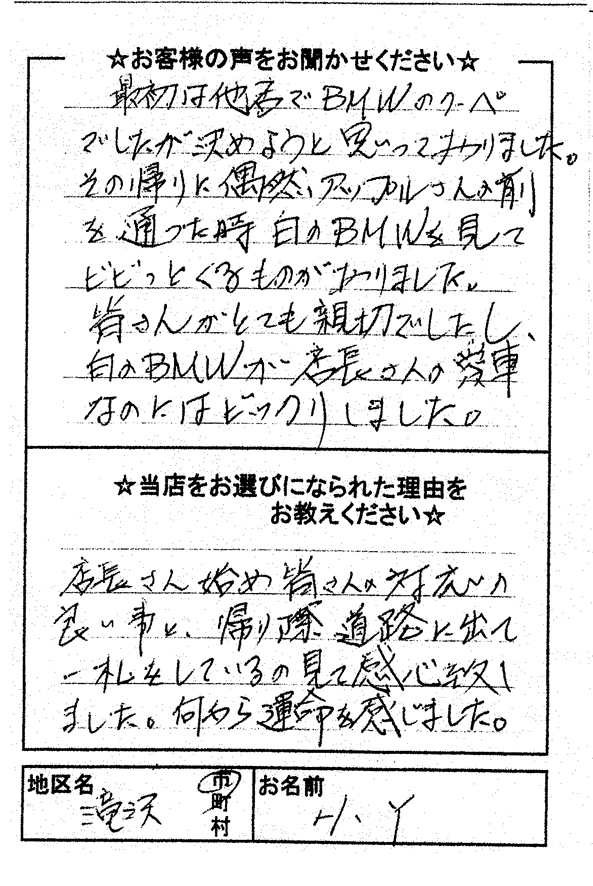 ☆お客様の声をお聞かせください☆
最初は他店でBMWのクーペ
でしたが決めようと思っておりました。
その帰りに偶然、アップルさんの前
を通った時白のBMWを見て
ビビっとくるものがありました。
皆さんがとても親切でしたし、
白のBMWが店長さんの愛車
なのにはビックリしました。
☆当店をお選びになられた理由を
お教えください☆
店長さん始め皆さんの対応の
良い事と、帰り際道路に出て
一礼をしているの見て感心致し
ました。何やら運命を感じました。
地区名
滝沢
市
町
村
お名前
H、Y